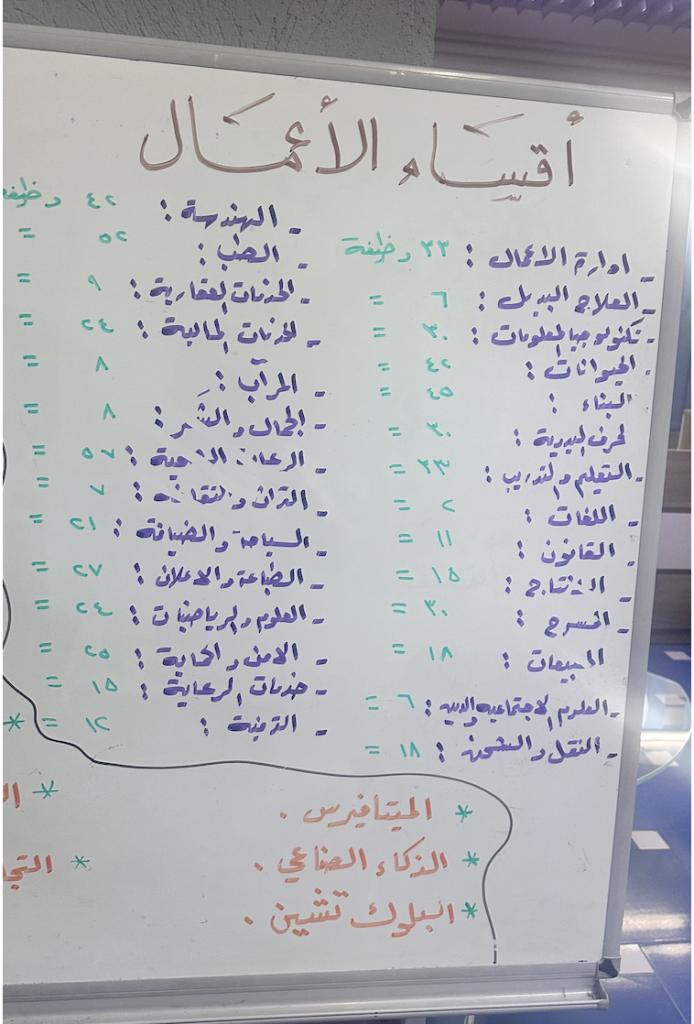 أقسام الأعمال
- ادارة الاعمال : ٣٣ وظيفة
- العلاج البديل : ٦ =
- تكنولوجيا المعلومات : ٣٠ =
- الحيوانات : ٤٢ =
البناء : ٤٥ =
لحرف اليدوية : ٣٠ =
- التعليم والتدريب : ٣٣ =
- اللغات : ٢ =
- القانون : ١١ =
- الانتاج : ١٥ =
- المسرح : ٣٠ =
المبيعات : ١٨ =
- العلوم الاجتماعيه والدينيه : ٦ =
- النقل والشحن : ١٨ =
- الهندسة : ٤٢ وظيفه
- الطب : ٥٢ =
- الخدمات العقارية : ٩ =
- الخدمات المالية : ٢٤ =
- المرآب : ٨ =
- الجمال والشعر : ٨ =
- الرعاية الصحية : ٥٧ =
- التراث والثقافه : ٧ =
- السياحة والضيافة : ٢١ =
- الطباعة والاعلان : ٢٧ =
- العلوم والرياضيات : ٢٤ =
- الامن والحماية : ٢٥ =
- خدمات الرعاية : ١٥ =
- التقنية : ١٢ = *
* الميتافيرس .
* الذكاء الصناعي .
* البلوك تشين .
*
* التجا